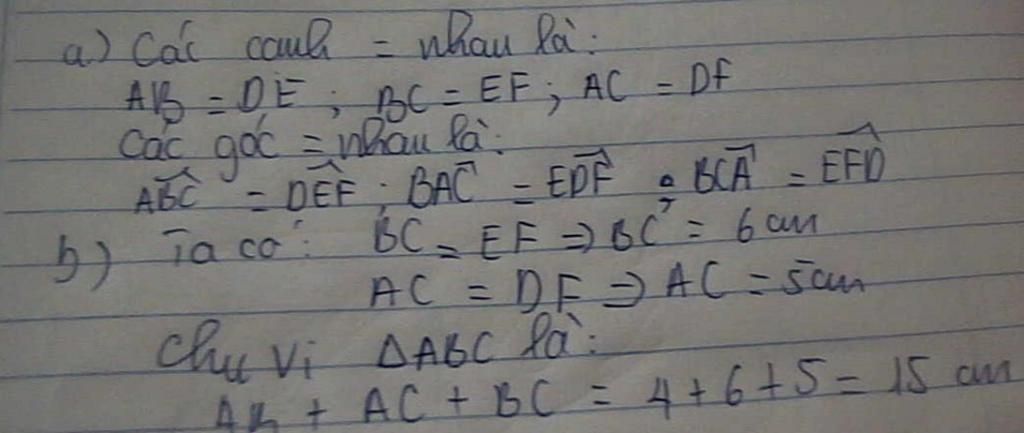 a) Các cạnh = nhau là:
AB = DE ; BC = EF ; AC = DF
Các góc = nhau là:
ABC = DEF ; BAC = EDF ; BCA = EFD
b) Ta có: BC = EF => BC = 6 cm
AC = DF => AC = 5cm
Chu vi ΔABC là:
AB + AC + BC = 4 + 6 + 5 = 15 cm